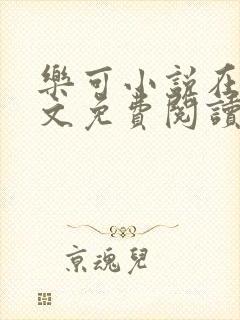 樂可小説在
文免費閱讀
京魂兒